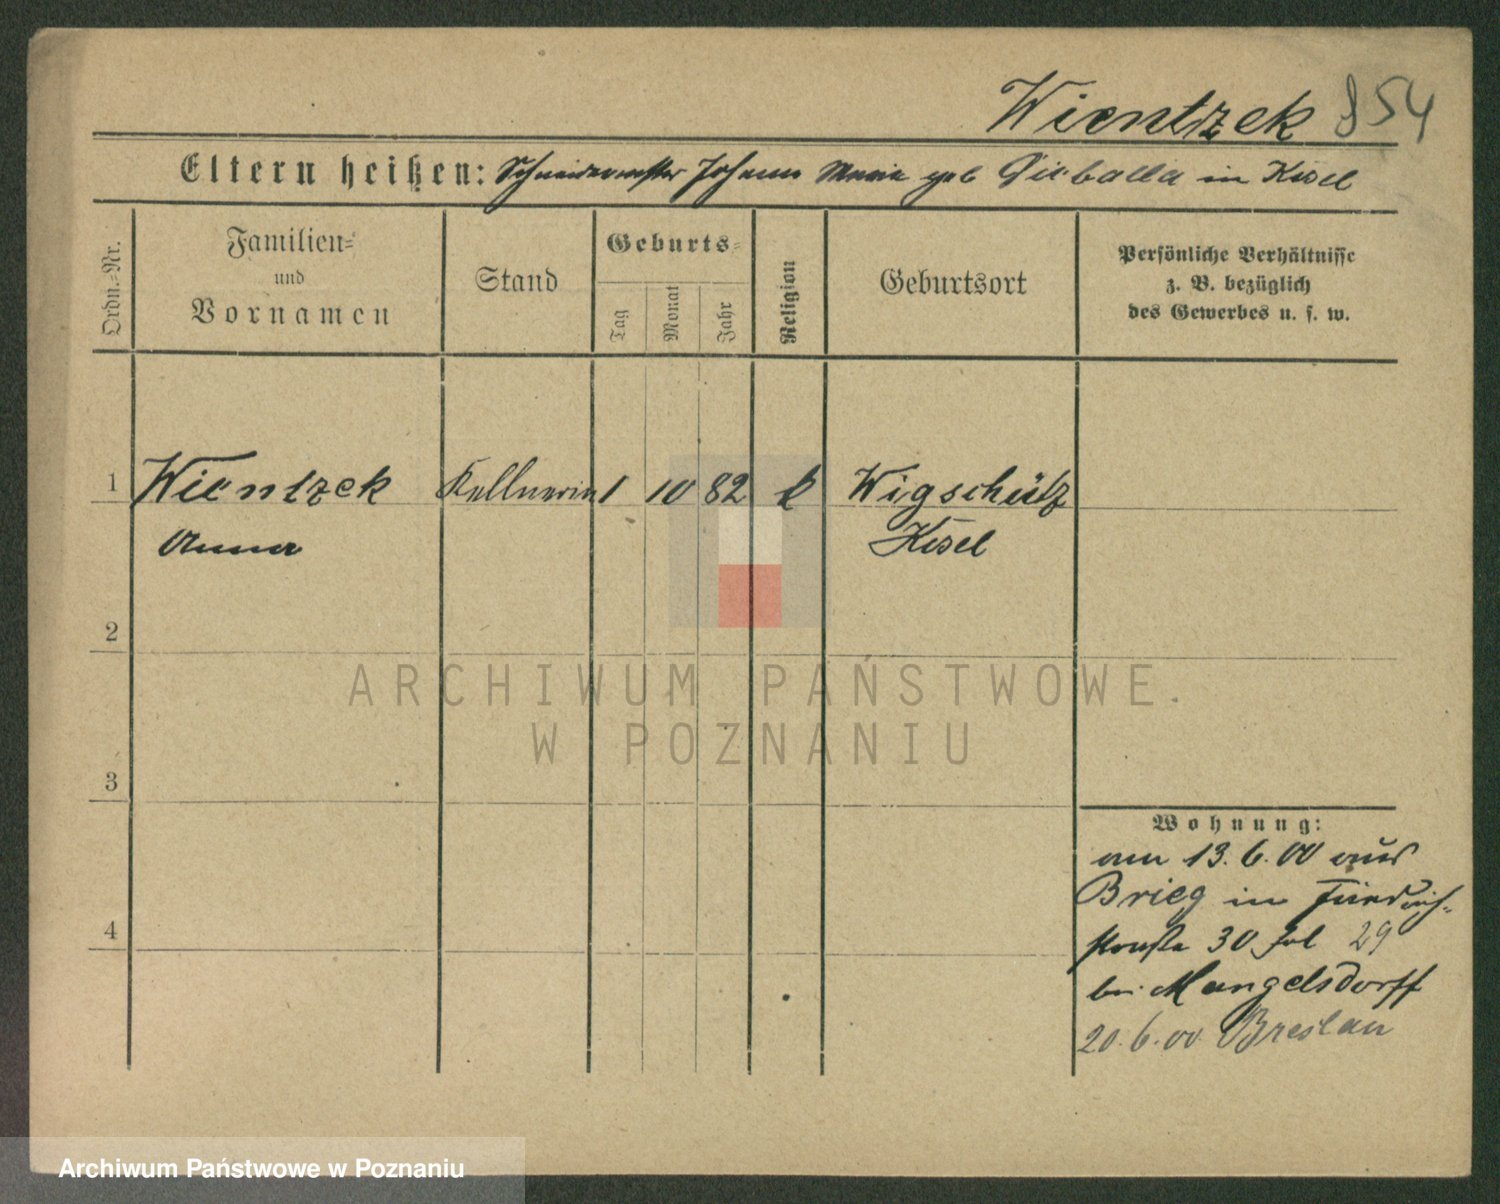 Wientzek 854
Eltern heißen: Schneidermeister Johann Marie geb in Kosel
Ordn.-Nr.
Familien-
und
Vornamen
Stand
Geburts-
Tag
Monat
Jahr
Religion
Geburtsort
Persönliche Verhältnisse
z. B. bezüglich
des Gewerbes u. s. w.
1 Wientzek Kellnerin 1 10 82 k Wigschütz
Anna Kosel
2
3
4
Wohnung:
am 13.6.00 aus
Brieg in Friedrich-
straße 30 29
bei Mangelsdorff
20.6.00 Breslau
ARCHIWUM PAŃSTWOWE
W POZNANIU
Archiwum Państwowe w Poznaniu